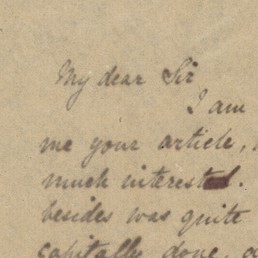 My dear Sir
I am
me your article,
much interested.
besides was quite
capitally done,